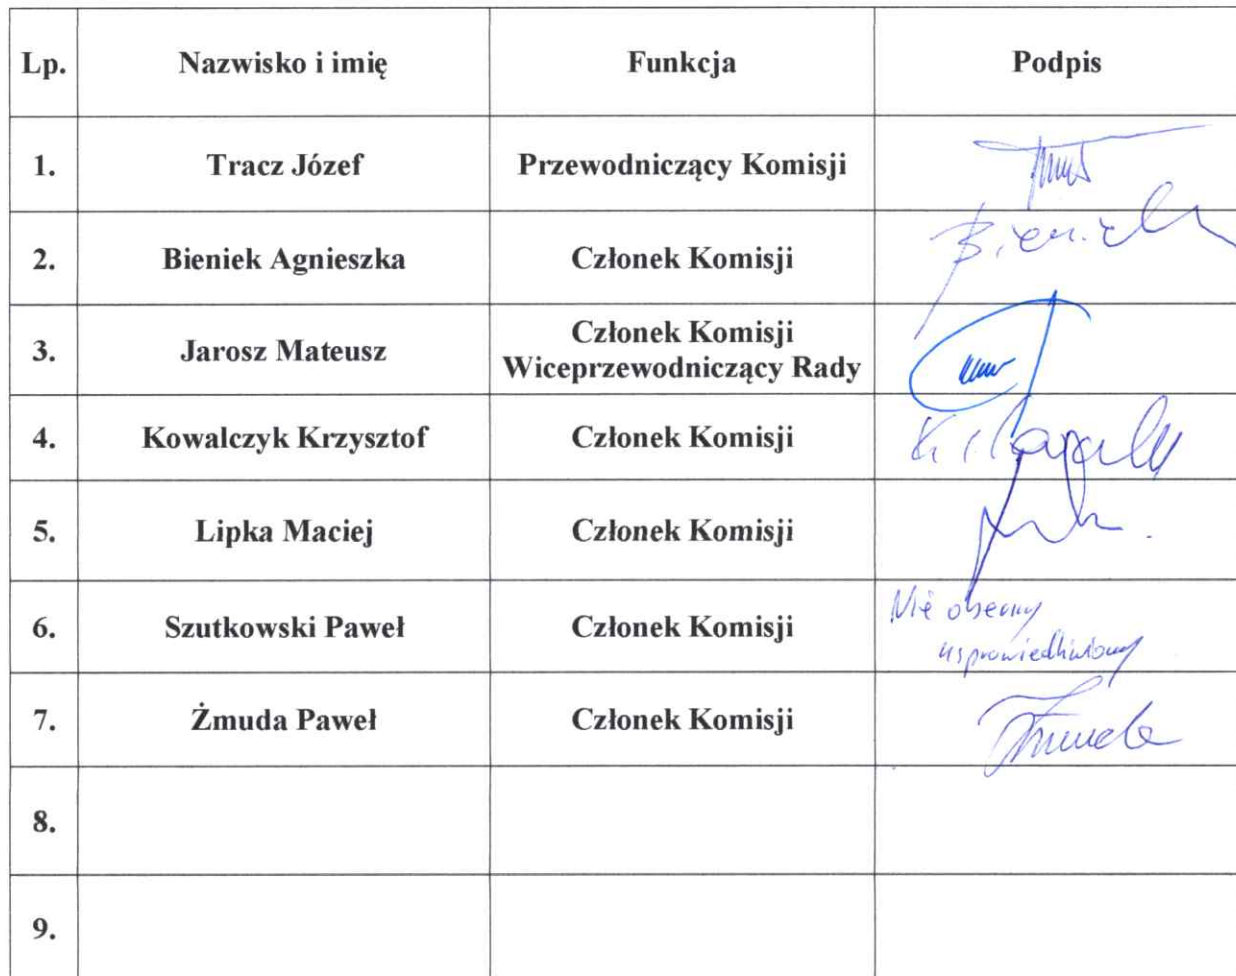 Lp. Nazwisko i imię Funkcja Podpis
1. Tracz Józef Przewodniczący Komisji
2. Bieniek Agnieszka Członek Komisji Bieniek
3. Jarosz Mateusz Członek Komisji
Wiceprzewodniczący Rady
4. Kowalczyk Krzysztof Członek Komisji
5. Lipka Maciej Członek Komisji
6. Szutkowski Paweł Członek Komisji Nie obecny
usprawiedliwiony
7. Żmuda Paweł Członek Komisji Żmuda
8.
9.